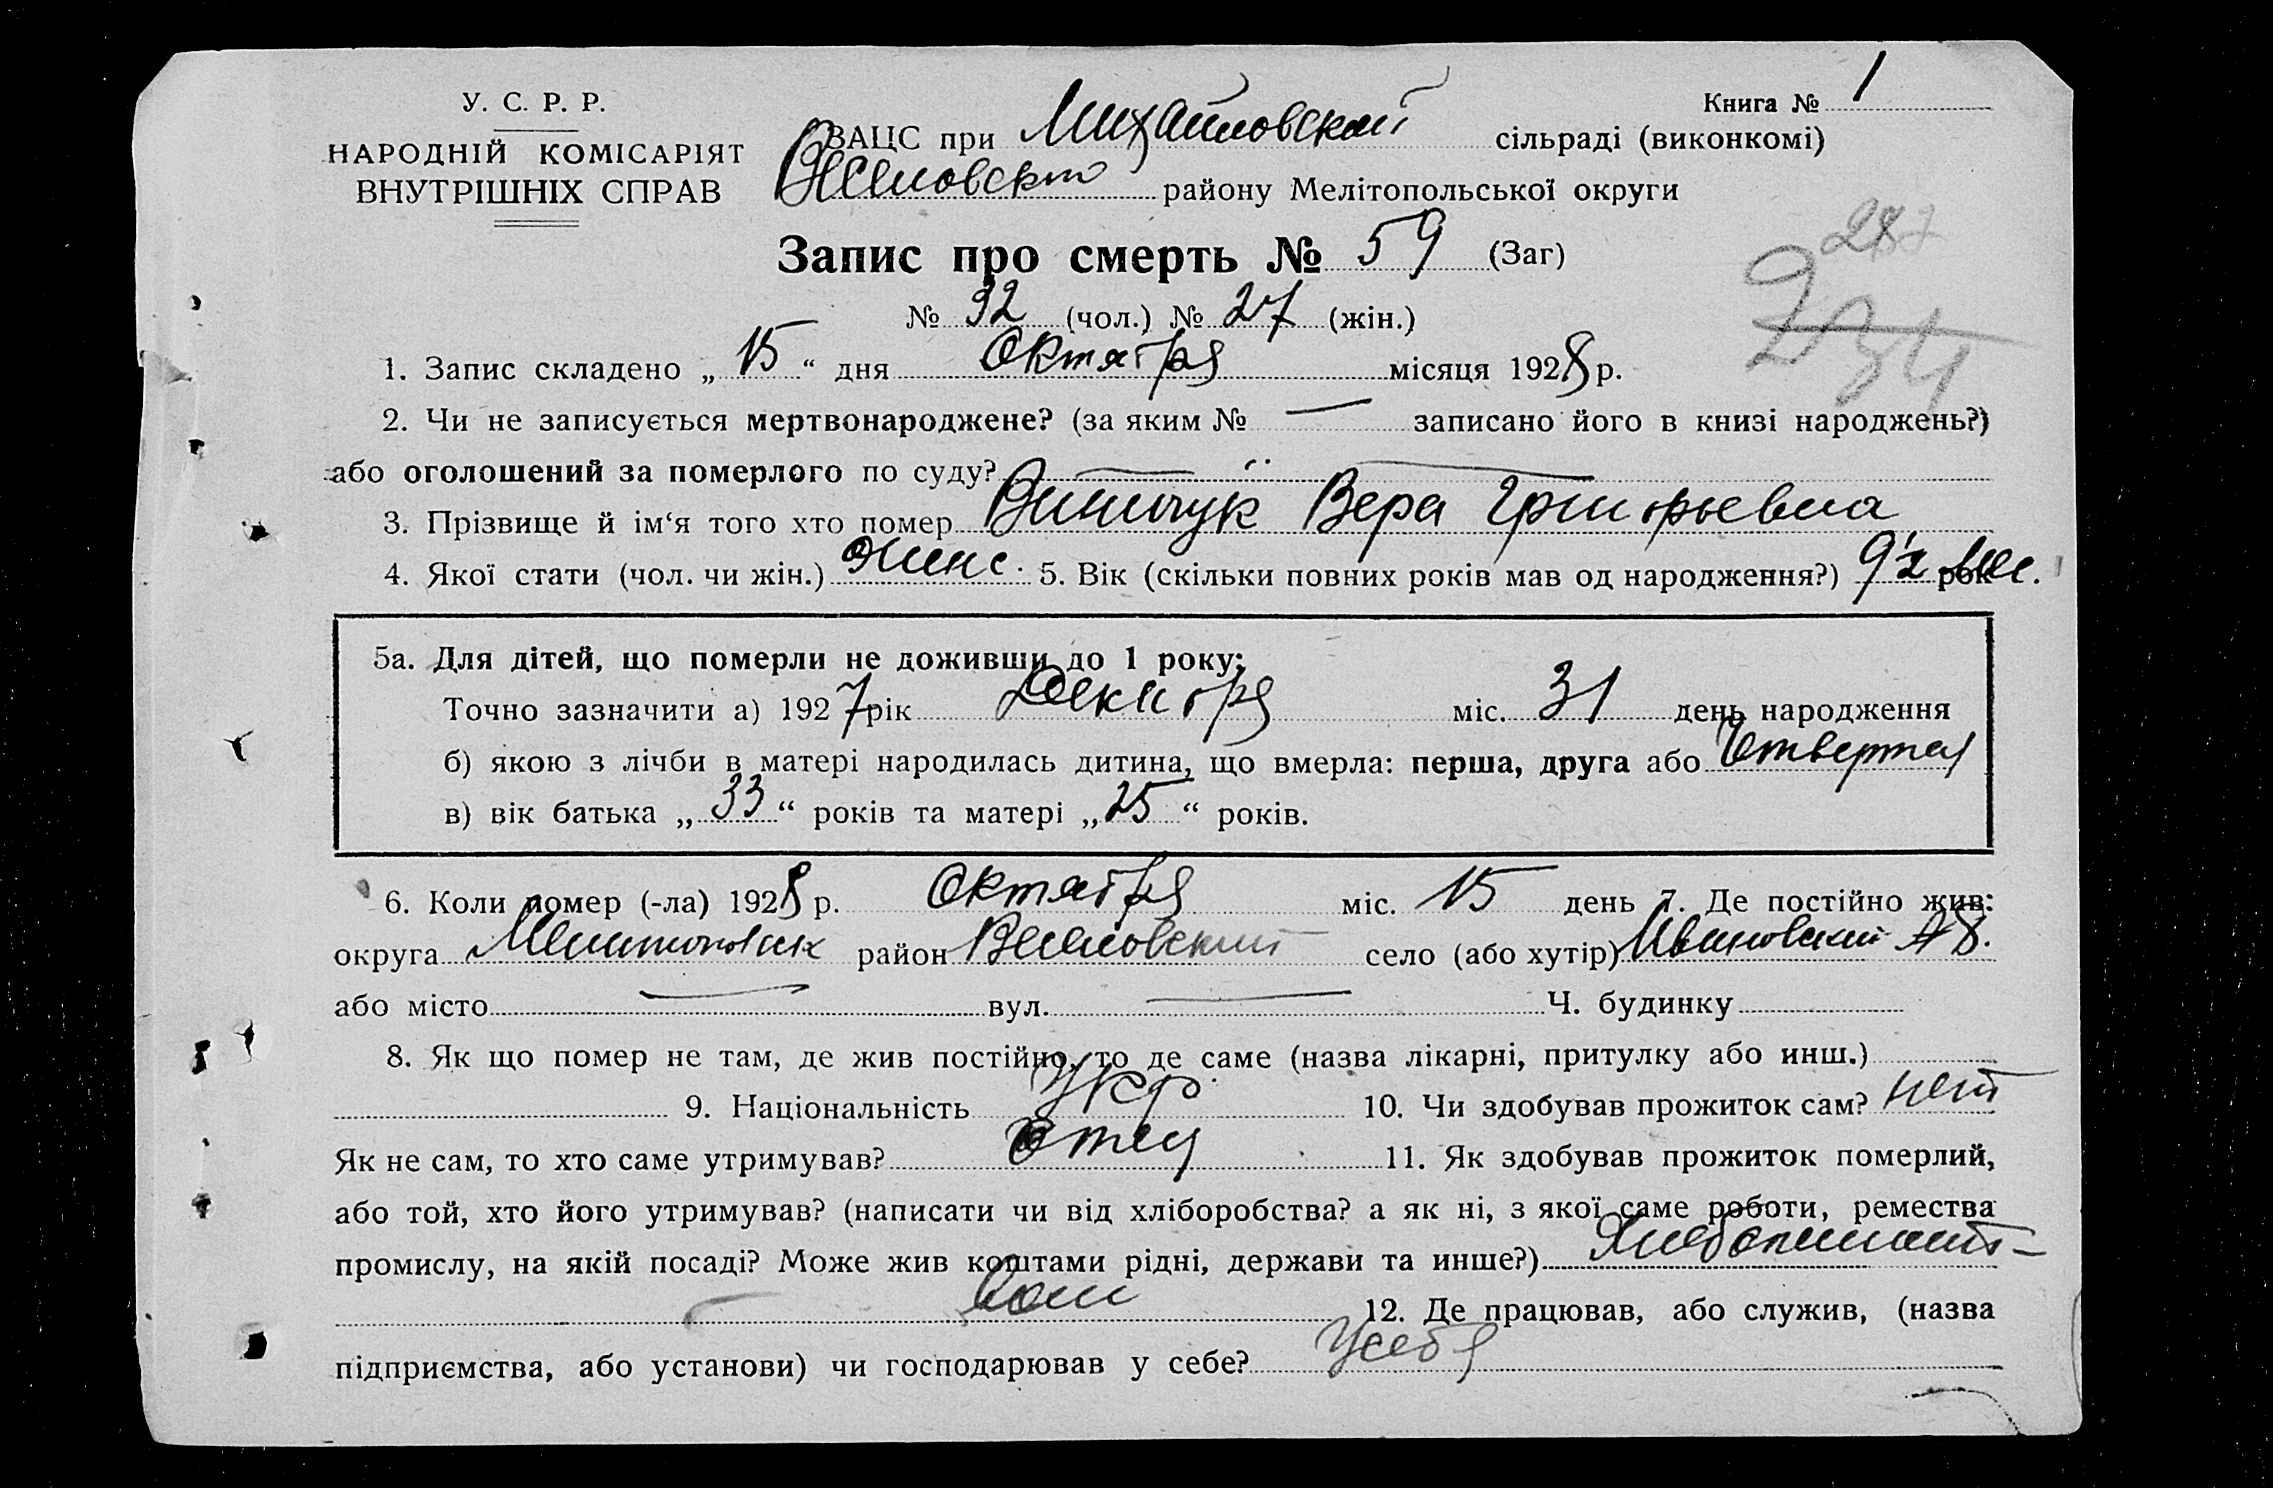 У. С. Р. Р.
НАРОДНІЙ КОМІСАРІЯТ
ВНУТРІШНІХ СПРАВ
Книга № 1
ЗАЦС при Михайловской сільраді (виконкомі)
района Мелітопольської округи
Запис про смерть № 59 (Заг)
№ 32 (чол.) № 27 (жін.)
1. Запис складено „ 15 “ дня Октября місяця 1928 р.
2. Чи не записується мертвонароджене? (за яким № — записано його в книзі народжень?)
або оголошений за померлого по суду? —
3. Прізвище й ім‘я того хто помер Вера Григорьевна
4. Якої стати (чол. чи жін.) женс. 5. Вік (скільки повних років мав од народження?) 9½ мес. рок
5а. Для дітей, що померли не доживши до 1 року:
Точно зазначити а) 1927 рік Декабря міс. 31 день народження
б) якою з лічби в матері народилась дитина, що вмерла: перша, друга або Четвертая
в) вік батька „ 33 “ років та матері „ 25 “ років.
6. Коли помер (-ла) 1928 р. Октября міс. 15 день 7. Де постійно жив:
округа район Веселовский село (або хутір) Ивановский
або місто — вул. — Ч. будинку
8. Як що помер не там, де жив постійно, то де саме (назва лікарні, притулку або инш.)
9. Національність Укр. 10. Чи здобував прожиток сам? нет
Як не сам, то хто саме утримував? отец 11. Як здобував прожиток померлий,
або той, хто його утримував? (написати чи від хліборобства? а як ні, з якої саме роботи, ремества
промислу, на якій посаді? Може жив коштами рідні, держави та инше?) Хлебопашест-
вом 12. Де працював, або служив, (назва
підприємства, або установи) чи господарював у себе? у себя